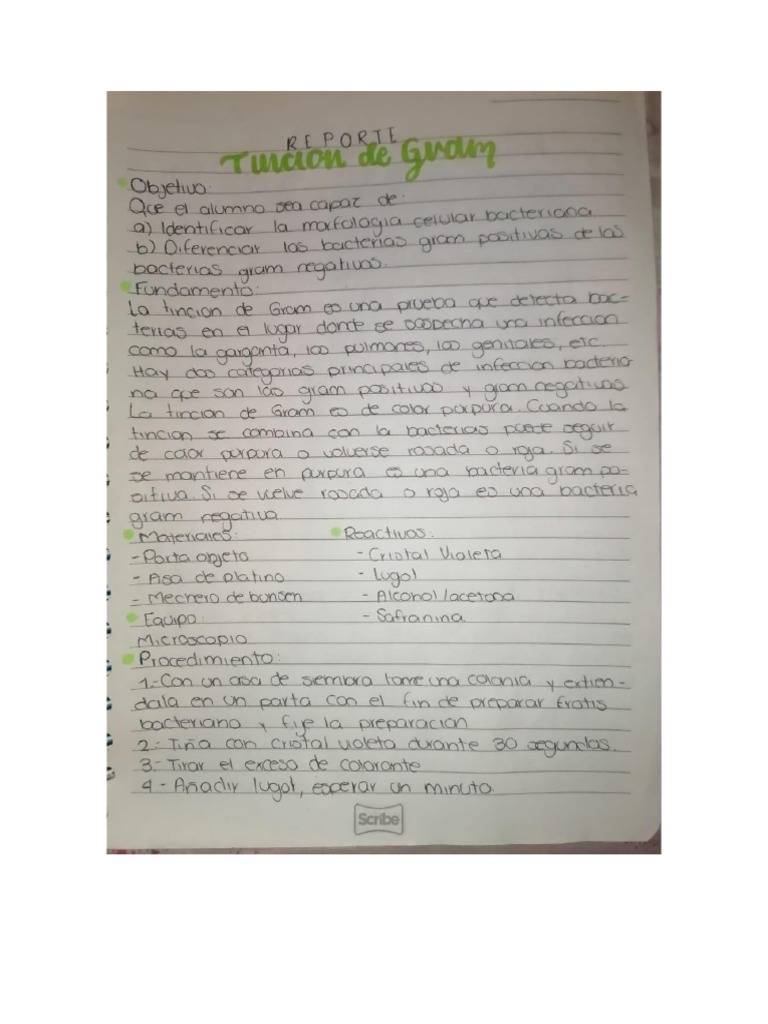 REPORTE
Tincion de Gram
Objetivo:
Que el alumno sea capaz de:
a) Identificar la morfologia celular bacteriana
b) Diferenciar las bacterias gram positivas de las
bacterias gram negativas.
Fundamento:
La tincion de Gram es una prueba que detecta bac-
terias en el lugar donde se sospecha una infeccion
como la garganta, los pulmones, los genitales, etc.
Hay dos categorias principales de infeccion bacteria
na que son las gram positivas y gram negativas
La tincion de Gram es de color purpura. Cuando la
tincion se combina con la bacterias puede seguir
de color purpura o volverse rosada o roja. Si se
se mantiene en purpura es una bacteria gram po-
sitiva. Si se vuelve rosada o roja es una bacteria
gram negativa
Materiales: Reactivos:
- Porta objeto - Cristal Violeta
- Asa de platino - Lugol
- Mechero de bunsen - Alcohol/acetona
Equipo: - Safranina.
Microscopio
Procedimiento:
1.- Con un asa de siembra tome una colonia y extien-
dala en un porta con el fin de preparar frotis
bacteriano y fije la preparacion
2.- Tiña con cristal violeta durante 30 segundos.
3.- Tirar el exceso de colorante
4.- Añadir lugol, esperar un minuto.
Scribe